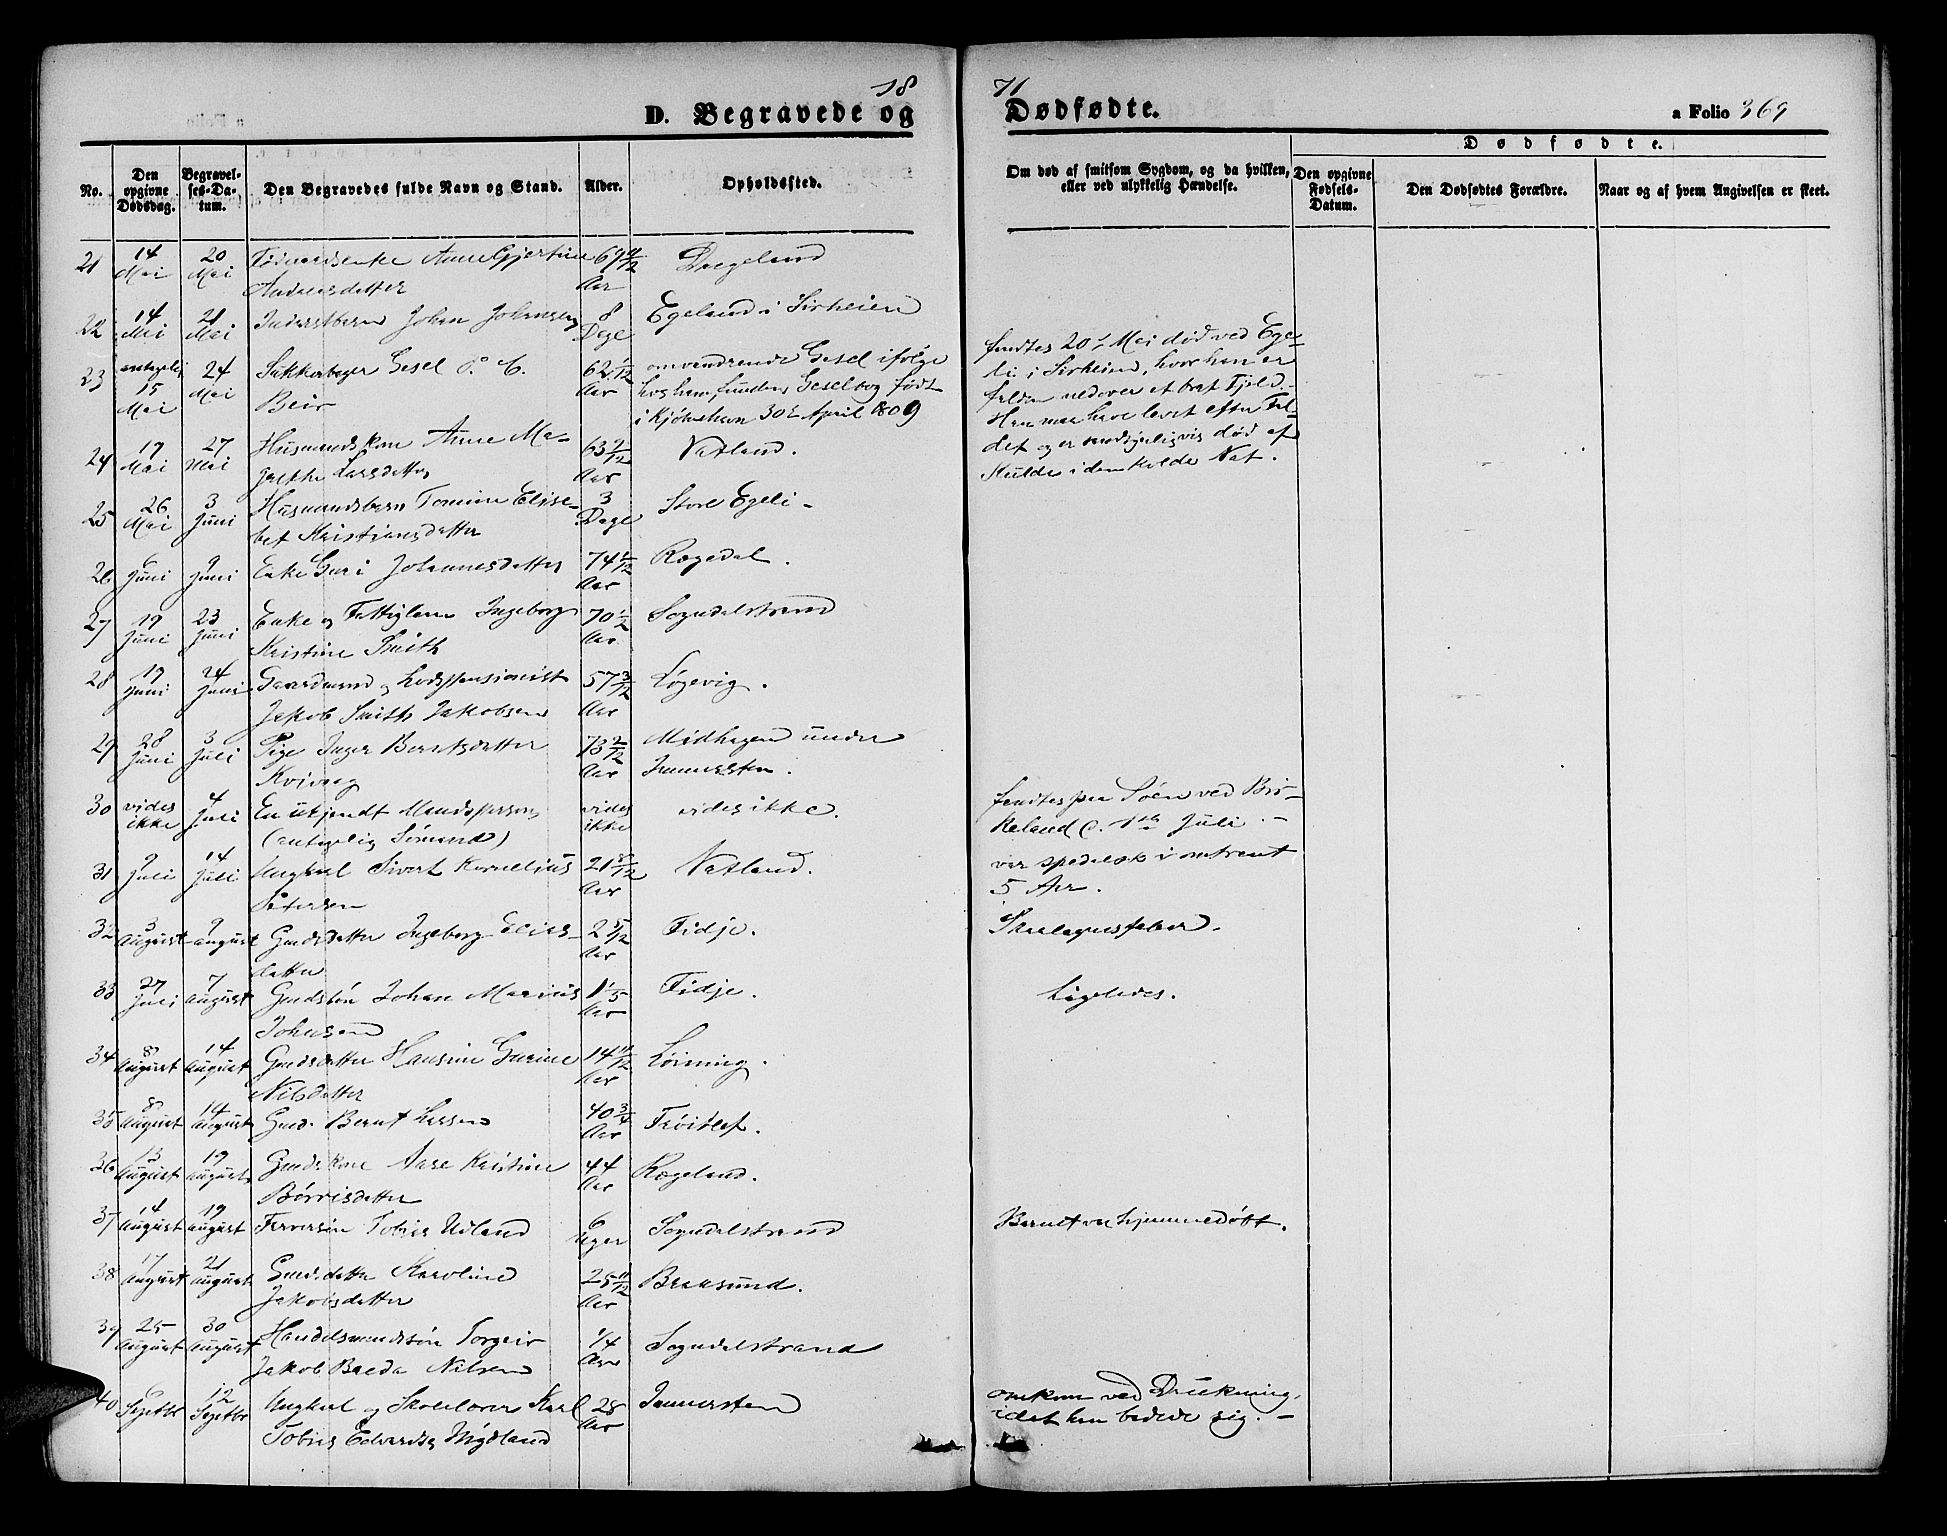 18 71
D. Begravede og Dødfødte.
a Folio 369
No.
Den opgivne Dødsdag.
Begravelses-Datum.
Den Begravedes fulde Navn og Stand.
Alder.
Opholdssted.
Om død af smitsom Sygdom, og da hvilken, eller ved ulykkelig Hændelse.
Dødfødte.
Den opgivne Fødsels-Datum.
Den Dødfødtes Forældre.
Naar og af hvem Angivelsen er skeet.
21 14 Mai 20 Mai Anne Gjertine Andreasdatter 69 Aar Drageland
22 14 Mai 21 Mai Inderstbarn Johan Johnsen 8 Dage Egeland i Sirheien
23 antagelig 15 Mai 24 Mai Sukkerbager Gesel O. C. Beir 62 1/12 Aar omvandrende Gesel ifølge
hos ham funden Geselbog født
i Kjøbenhavn 30te April 1809
fandtes 20de Mai død ved Ege-
li i Sirheien, hvor han er
falden nedover et brat Fjeld.
Han maa have levet efter Fal-
det og er sandsynligvis død af
Kulde i den kolde Nat.
24 19 Mai 27 Mai Husmandskone Anne Ma-
grethe Larsdatter 63 2/12 Aar Vatland.
25 26 Mai 3 Juni Husmandsbarn Tomine Elise-
bet Kristiansdatter 3 Dage Store Egeli
26 6 Juni 9 Juni Enke Guri Johannesdatter 74 1/12 Aar Rægedal.
27 19 Juni 23 Juni Enke og Fattiglem Ingeborg
Kristine Smith 70 1/2 Aar Sogndalstrand
28 19 Juni 24 Juni Gaardmand og Lodspensionist
Jakob Smith Jakobsen 57 3/12 Aar Løgevig.
29 28 Juni 3 Juli Pige Inger Berntsdatter
Kvivog 73 2/12 Aar Midhagen under
Immersten.
30 vides ikke 4 Juli En ukjendt Mandsperson
(antagelig Sømand) vides ikke vides ikke. fandtes paa Søen ved Bir-
keland c. 1ste Juli.
31 9 Juli 14 Juli Ungkarl Sivert Kornelius
Petersen 21 8/12 Aar Vatland. var spedalsk i omtrent
5 Aar.
32 3 August 9 August Gmdsdatter Ingeborg Elias-
datter 2 5/12 Aar Fidje. Skarlagensfeber.
33 27 Juli 7 August Gmdssøn Johan Marius
Johnsen 1 1/5 Aar Fidje. Ligeledes.
34 8 August 14 August Gmdsdatter Hansine Gurine
Nilsdatter 14 11/12 Aar Løining.
35 8 August 14 August Gmd. Bernt Larsen 40 3/4 Aar Frøitlef.
36 13 August 19 August Gmdskone Aase Kristine
Børresdatter 44 Aar Rægeland.
37 14 August 19 August Farversøn Tobias Udland 6 Uger Sogndalstrand Barnet var hjemmedøbt.
38 17 August 21 August Gmdsdatter Karoline
Jakobsdatter 25 11/12 Aar Bræksund.
39 25 August 30 August Handelsmandssøn Torgeir
Jakob Breda Nilsen 1/4 Aar Sogndalstrand
40 6 Septbr 12 Septbr Ungkarl og Skolelærer Karl
Tobias Edvardsen Mydland 28 Aar Immersten omkom ved Drukning,
idet han badede sig.